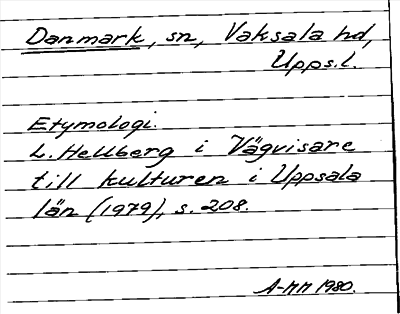 Danmark, sn, Vaksala hd,
Upps.l.
Etymologi.
L. Hellberg i Vägvisare
till kulturen i Uppsala
län (1979), s. 208.
A-MM 1980.